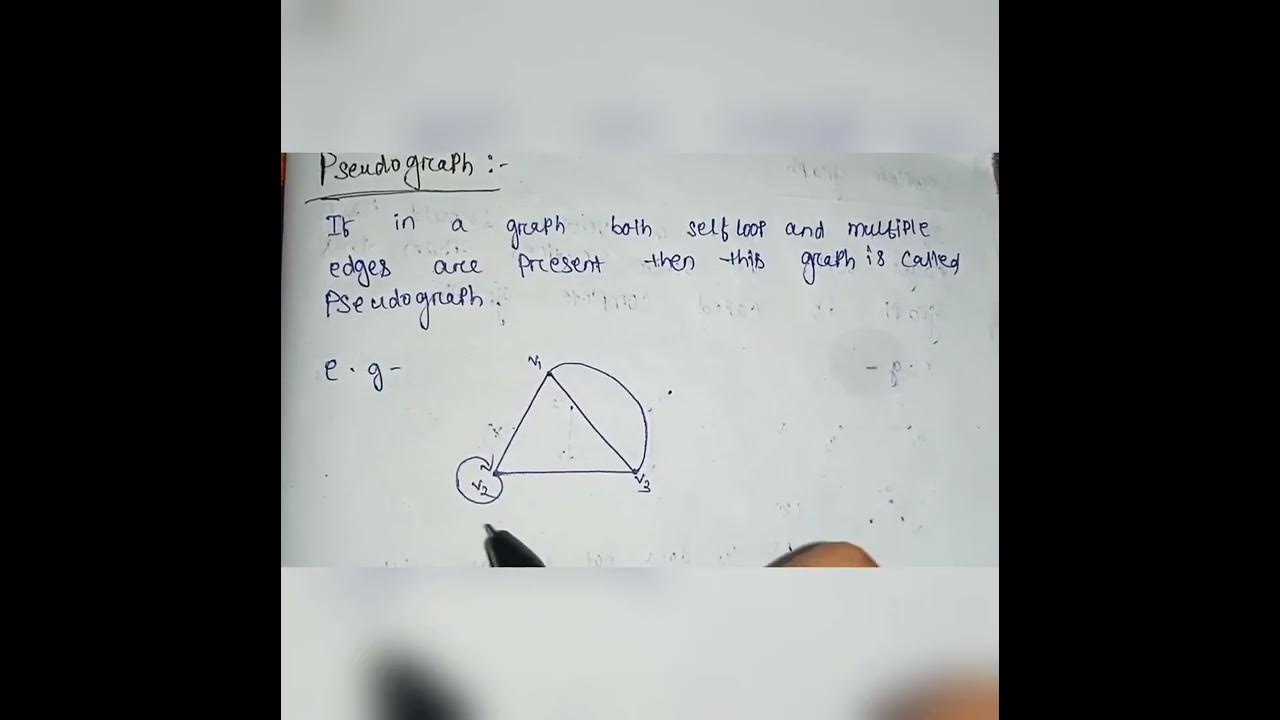 Pseudograph :-
If in a graph both self loop and multiple
edges are present then this graph is called
Pseudograph.
e.g-
v1
v2
v3